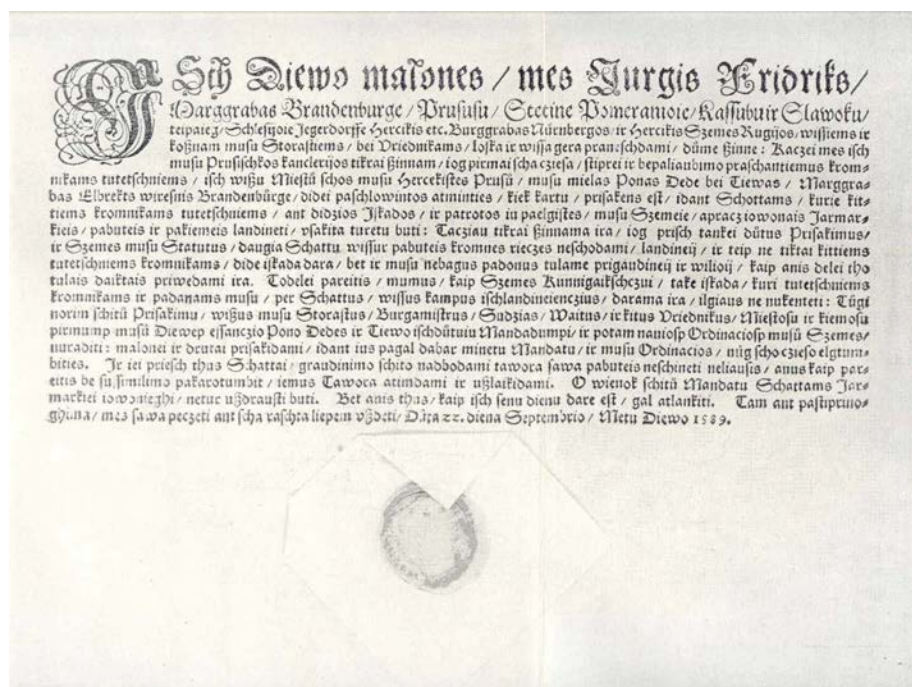 ISch Diewo malones / mes Jurgis Fridriks /
Marggrabas Brandenburge / Prususu / Stetine Pomeranioie / Kassubu ir Slawoku /
teipaieg / Schlesijoie Jegerdorffe Hercikis etc. Burggrabas Nürnbergos / ir Hercikis Szemes Rugijos / wissiems ir
koßnam musu Storastiems / bei Vriednikams / loska ir wissa gera praneschdami / důme ßinne : Kaczei mes isch
musu Prusischkos kanclerijos tikrai ßinnam / iog pirmai scha cziesa / stiprei ir bepaliaubimo praschantiemus krom-
nikams tutetschniems / isch wißu Miestů schos musu Hercekistes Prusů / musu mielas Ponas Dede bei Tiewas / Marggra-
bas Elbrekts wiresnis Brandenbůrge / didei paschlowintos atminties / kiek kartu / prisakens est / idant Schottams / kurie kit-
tiems kromnikams tutetschniems / ant didzios Jskados / ir patrotos iu paelgistes / musu Szemeie / apracz iowonais Jarmar-
kieis / pabuteis ir pakiemeis landineti / vsakita turetu buti : Tacziau tikrai ßinnama ira / iog prisch tankei důtus Prisakimus /
ir Szemes musu Statutus / daugia Schattu wissur pabuteis kromnes rieczes neschodami / landineij / ir teip ne tiktai kittiems
tutetschniems kromnikams / dide iskada dara / bet ir musu nebagus padonus tulame prigaudineij ir wilioij / kaip anis delei tho
tulais daiktais priwedami ira. Todelei pareitis / mumus / kaip Szemes Kunnigaikschczui / take iskada / kuri tutetschniems
kromnikams ir padanams musu / per Schattus / wissus kampus ischlandineienczius / darama ira / ilgiaus ne nukenteti : Tůgi
norim schitů Prisakimu / wißus musu Storastus / Burgamistrus / Sudzias / Waitus / ir kitus Vriednikus / Miestosu ir kiemosu
pirmump musů Diewep essanczio Pono Dedes ir Tiewo ischdůtuiu Mandadumpi / ir potam nauiosp Ordinaciosp musů Szemes /
nuraditi : malonei ir drutai prisakidami / idant ius pagal dabar minetu Mandatu / ir musu Ordinacios / nůg scho czieso elgtum-
bities. Ir iei priesch thus Schattai / graudinimo schito nadbodami tawora sawa pabuteis neschineti neliausis / anus kaip par-
eitis be susimilimo pakarotumbit / iemus Tawora atimdami ir ußlaikidami. O wienok schitů Mandatu Schattams Jar-
markiei iowonieghi / netur vßdrausti buti. Bet anis thus / kaip isch senu dienu dare est / gal atlankiti. Tam ant pastiprino-
ghima / mes sawa peczeti ant scha raschta liepem vßdeti / Data 22. diena Septembrio / Metu Diewo 1589.